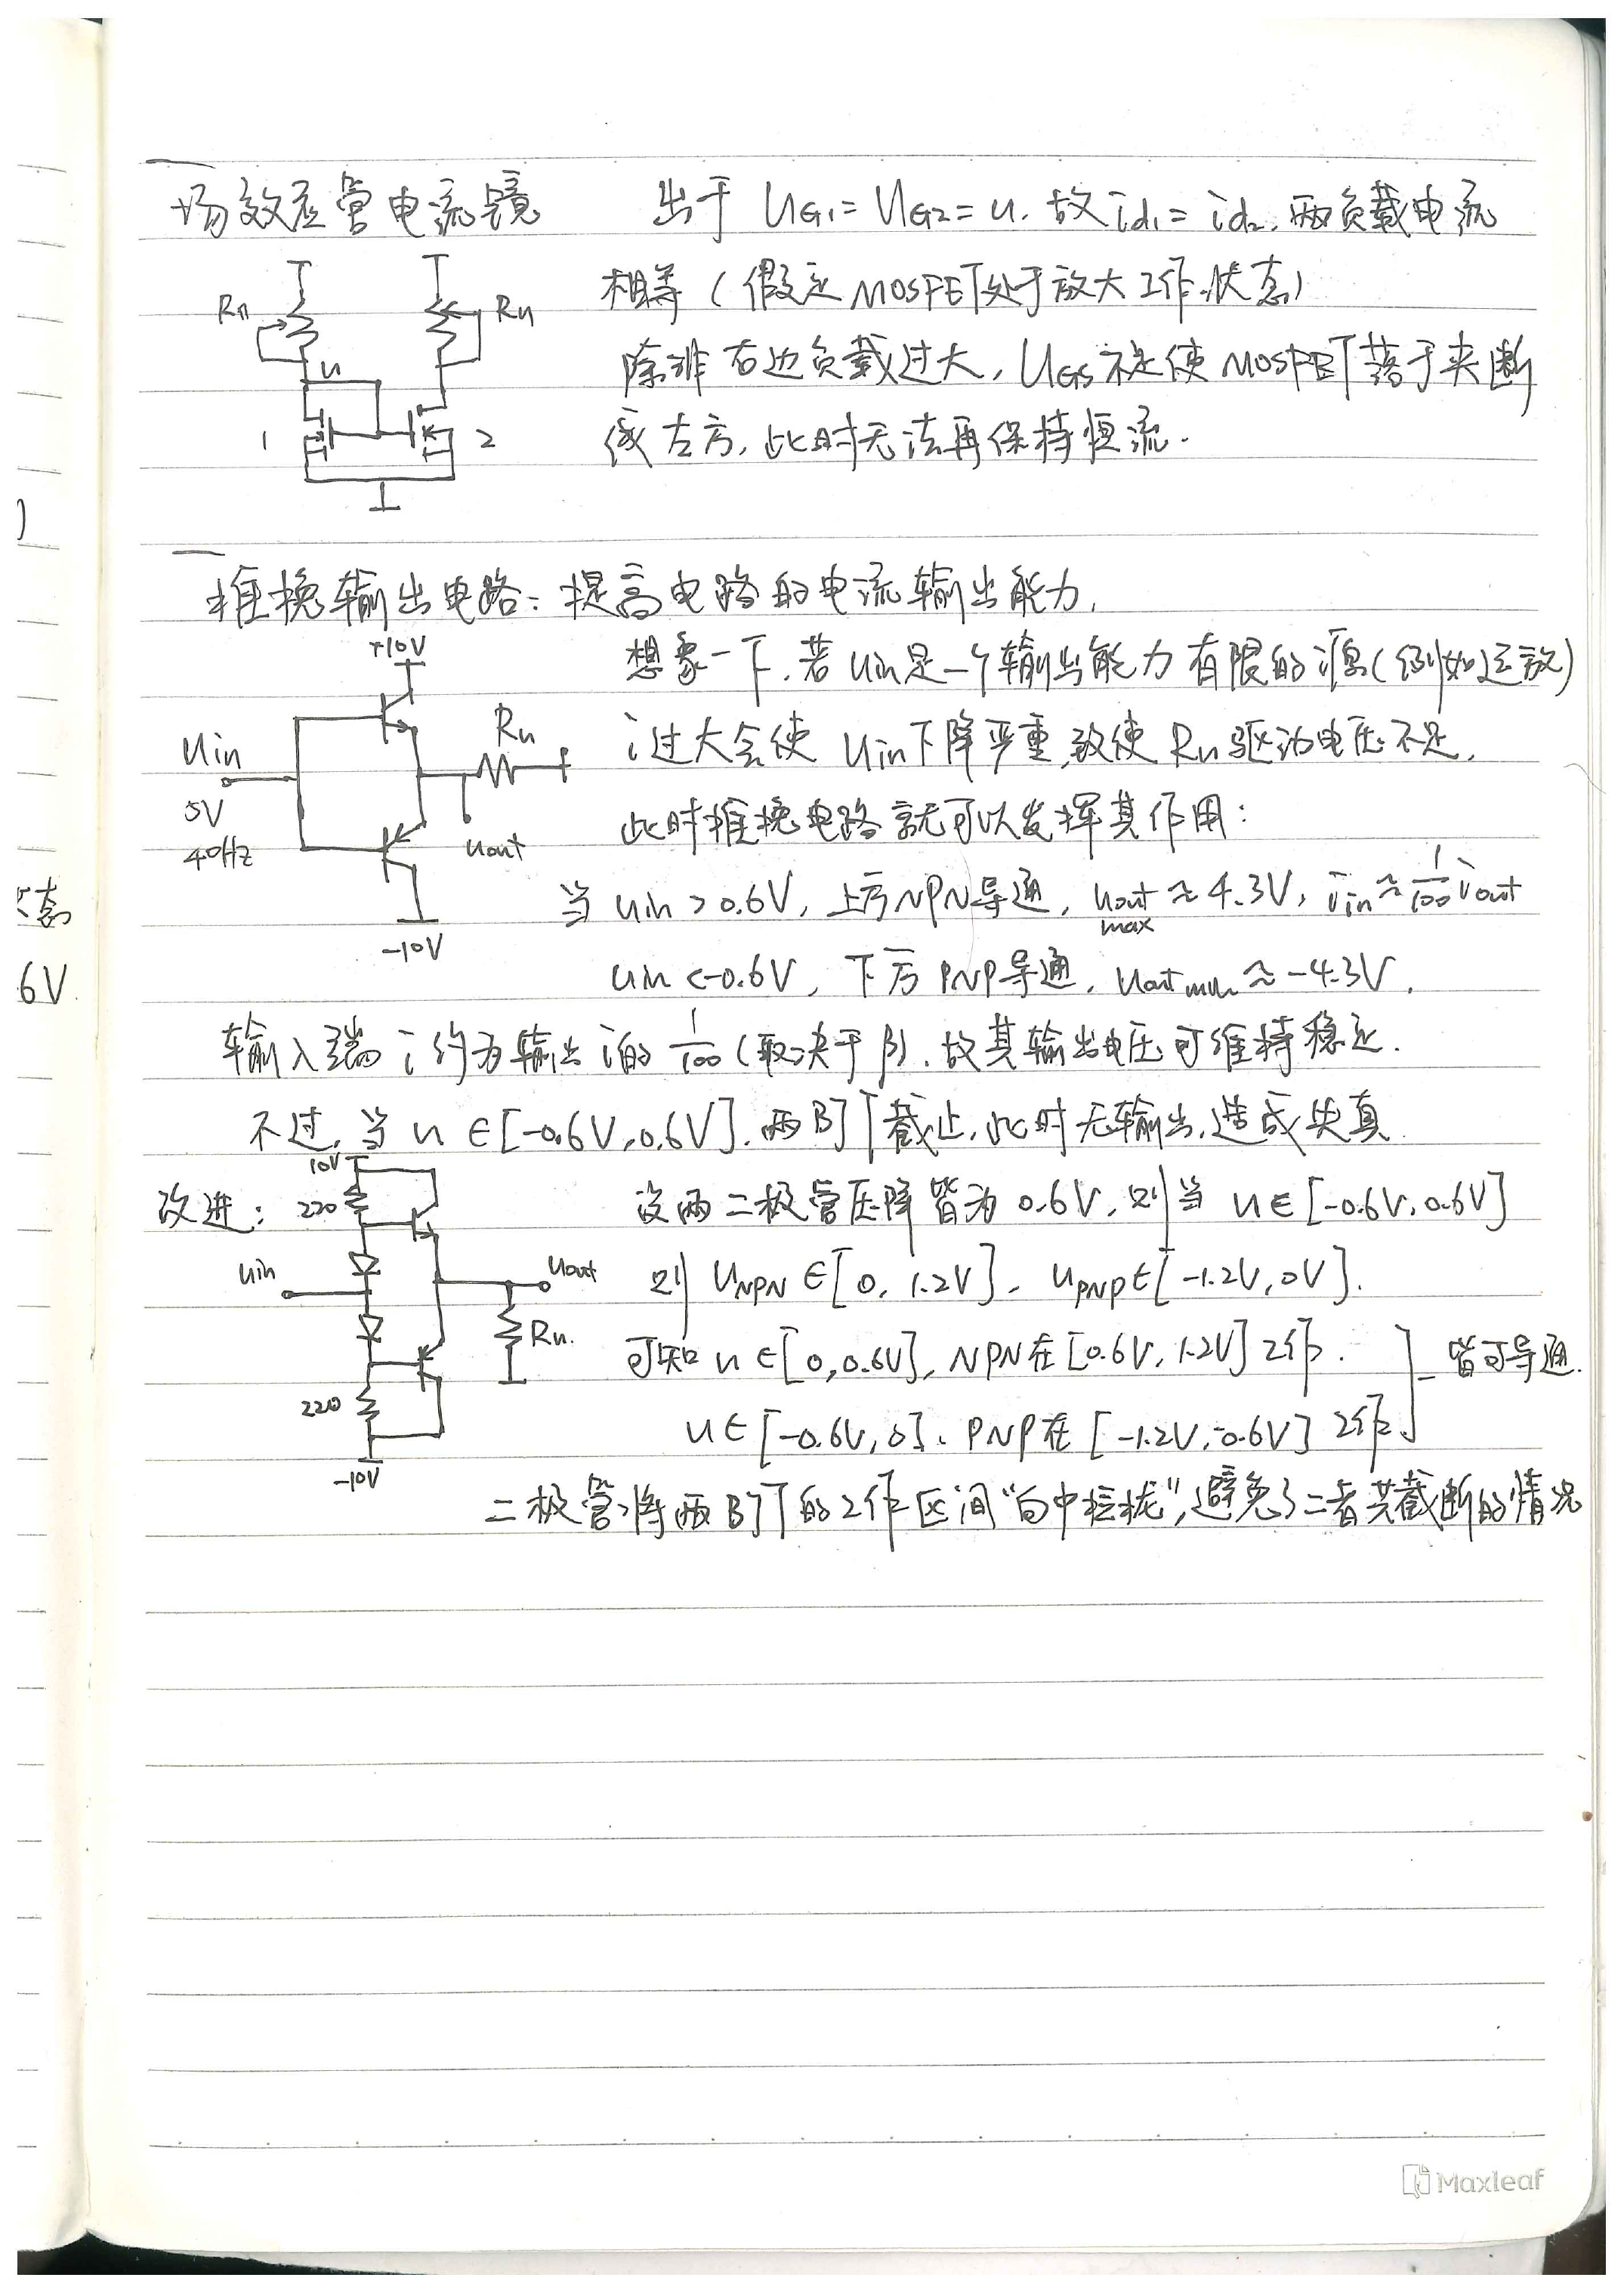 场效应管电流镜 出于 UG1=UG2=u. 故id1=id2. 两负载电流
相等（假定MOSFET处于放大工作状态）
除非右边负载过大, UGS不足使MOSFET落于夹断
线左方, 此时无法再保持恒流.
Rn
Rn
u
1
2
推挽输出电路: 提高电路的电流输出能力.
想象一下. 若Uin是一个输出能力有限的源(例如运放)
i过大会使 Uin下降严重,致使Rn驱动电压不足.
此时推挽电路就可以发挥其作用:
+10V
Uin
5V
40Hz
Rn
uout
-10V
当 Uin>0.6V, 上方NPN导通, uout max≈4.3V, iin≈1/100 iout
uin<-0.6V, 下方PNP导通. uout min≈-4.3V.
输入端i约为输出i的1/100(取决于β). 故其输出电压可维持稳定.
不过, 当u∈[-0.6V,0.6V]. 两BJT截止,此时无输出,造成失真.
改进:
10V
220
uin
uout
Rn.
220
-10V
设两二极管压降皆为0.6V, 则当 u∈[-0.6V,0.6V]
则 UNPN∈[0,1.2V], UPNP∈[-1.2V,0V].
可知u∈[0,0.6V], NPN在[0.6V,1.2V]工作.
皆可导通.
u∈[-0.6V,0]. PNP在[-1.2V,-0.6V]工作
二极管将两BJT的工作区间"向中拉拢",避免了二者共截断的情况
态
6V.
Maxleaf